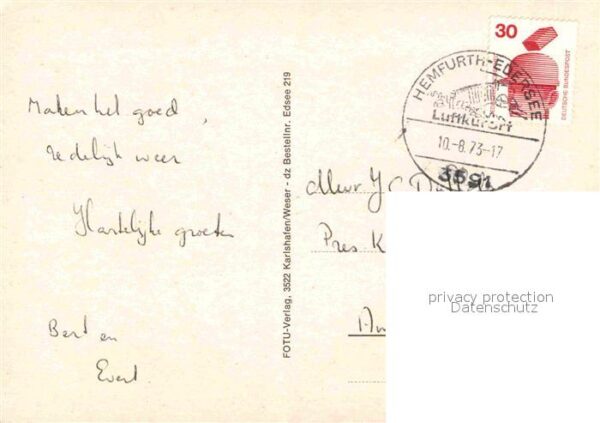 Maken het goed,
redelijk weer
Hartelijke groeten
Bert en
Evert
FOTU-Verlag, 3522 Karlshafen/Weser - dz Bestellnr. Edsee 219
30
DEUTSCHE BUNDESPOST
HEMFURTH-EDERSEE
Luftkurort
10.-8.73-17
3591
Mevr J C D
Pres K
privacy protection
Datenschutz